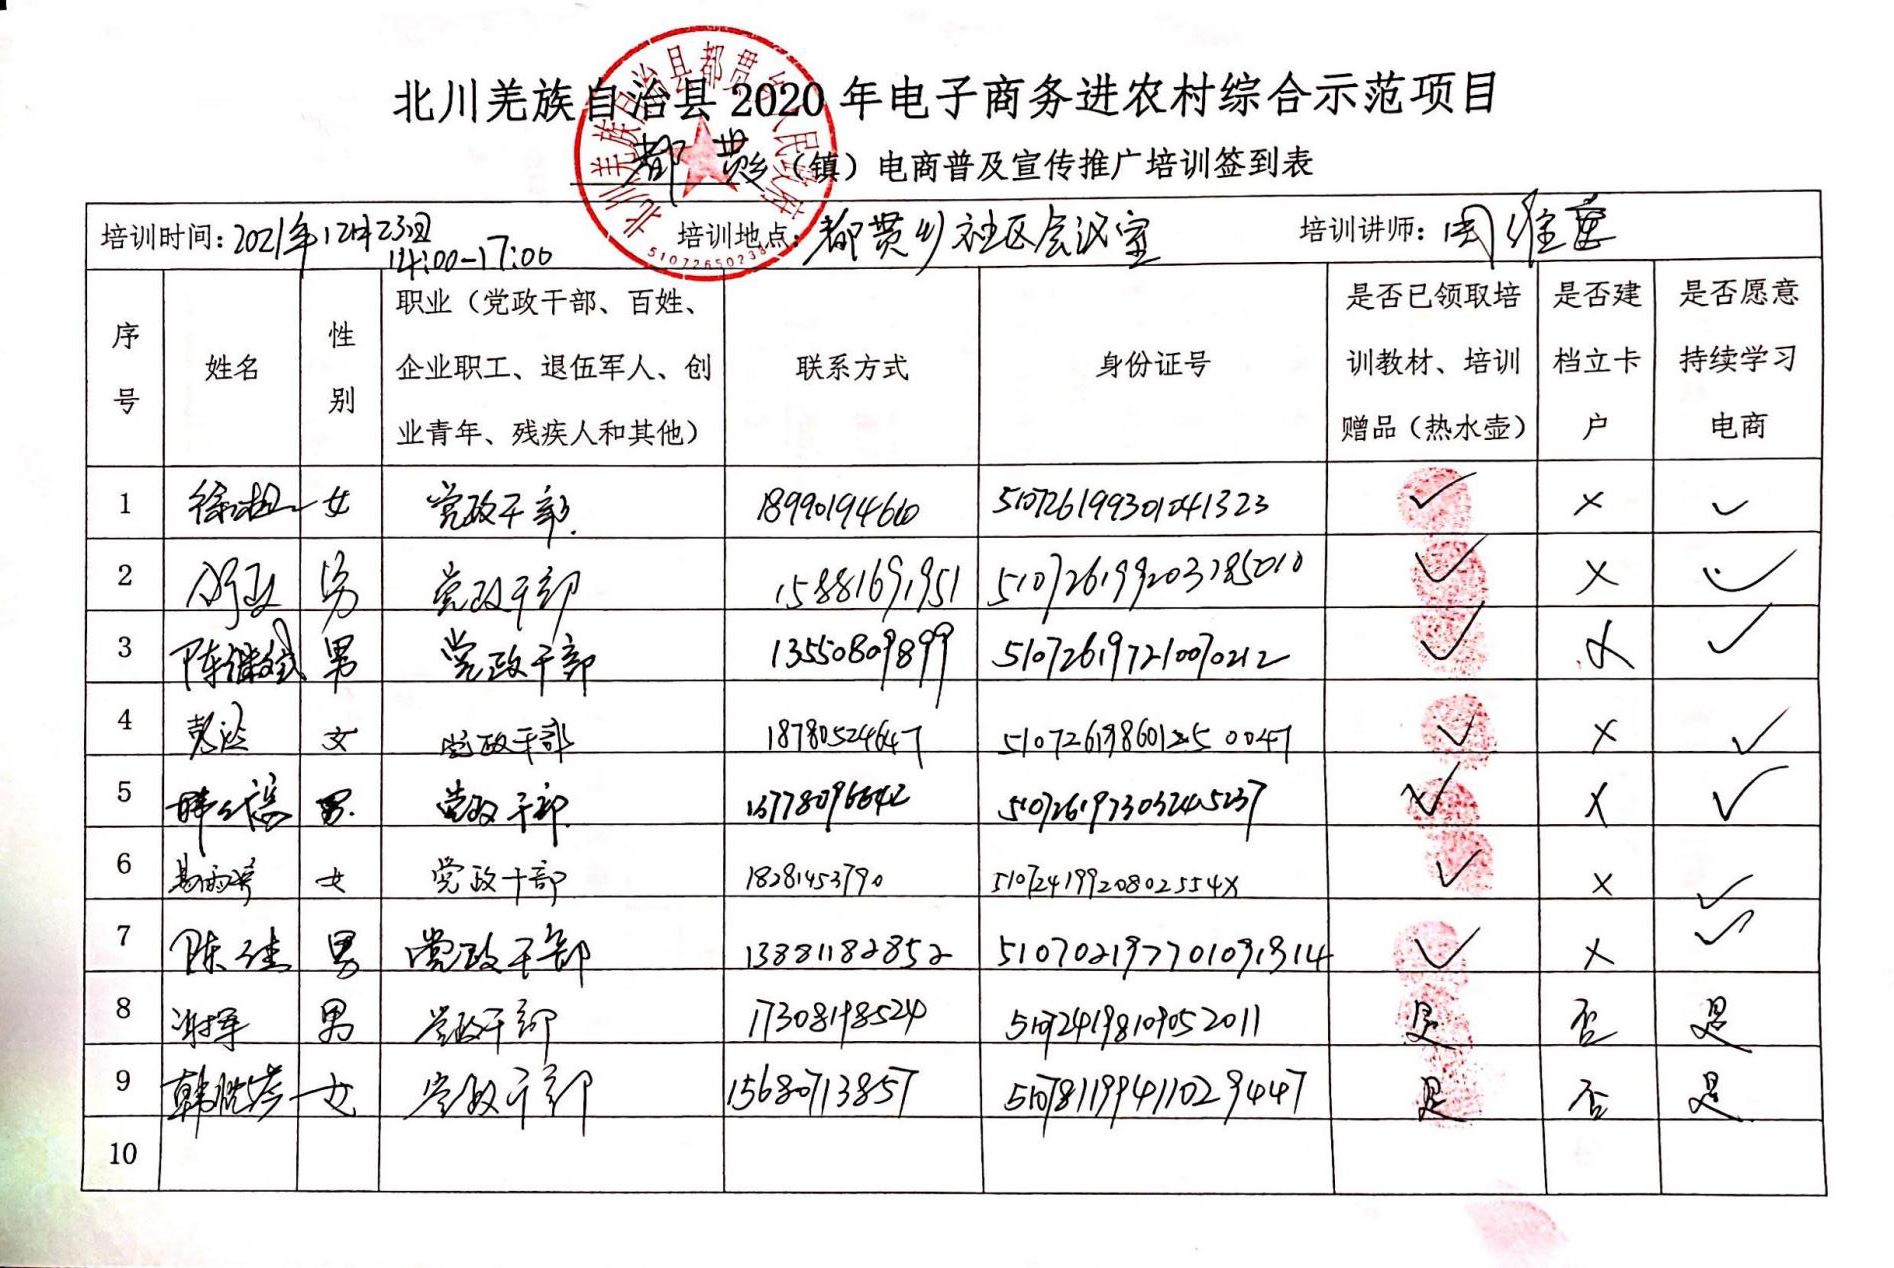 北川羌族自治县 2020 年电子商务进农村综合示范项目
都贯乡（镇）电商普及宣传推广培训签到表
北川羌族自治县都贯乡人民政府
培训时间：2021年12月23日 14:00-17:00 培训地点：都贯乡社区会议室 培训讲师：周维
序号 姓名 性别 职业（党政干部、百姓、企业职工、退伍军人、创业青年、残疾人和其他） 联系方式 身份证号 是否已领取培训教材、培训赠品（热水壶） 是否建档立卡户 是否愿意持续学习电商
1 女 党政干部 ✓ × ✓
2 男 党政干部 15881691951 ✓ × ✓
3 男 党政干部 13550809899 510726197210070212 ✓ × ✓
4 女 党政干部 18780524647 ✓ × ✓
5 男 党政干部 13778096642 510726197303245237 ✓ × ✓
6 女 党政干部 18281453790 51072419920802554X ✓ × ✓
7 陈 男 党政干部 13881182852 510702197701091314 ✓ × ✓
8 谢军 男 党政干部 17308198524 510724198109052011 是 否 是
9 韩 女 党政干部 15680713857 510781199411029447 是 否 是
10